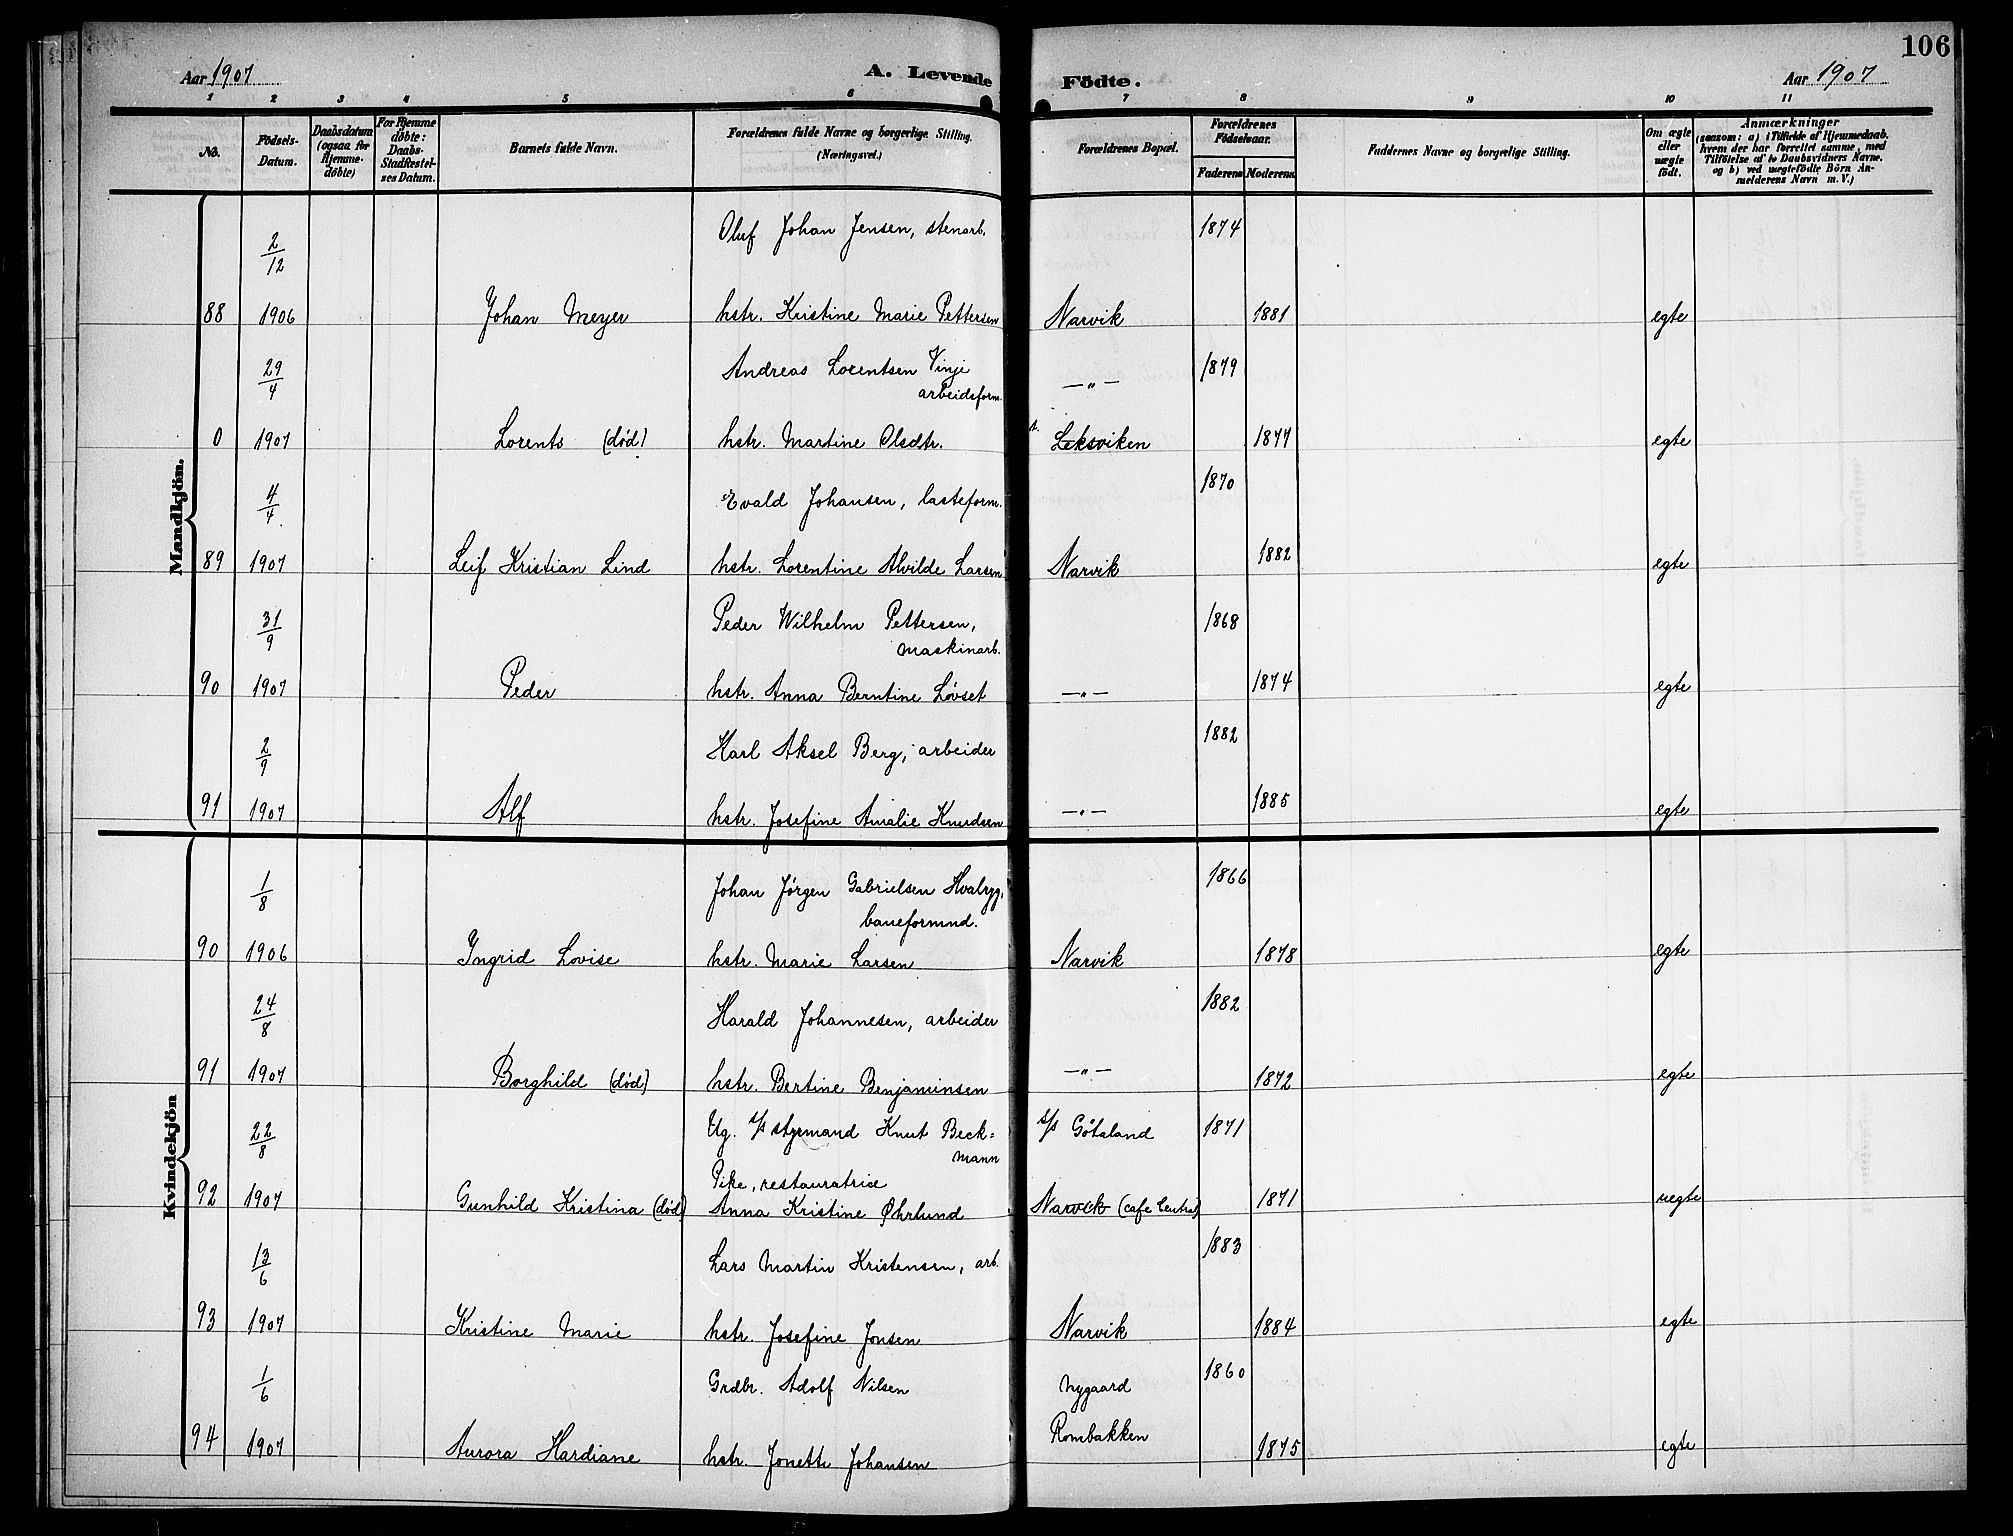 106
Aar 1907 A. Levende Födte. Aar 1907
1 2 3 4 5 6 7 8 9 10 11
No. Födsels-Datum. Daabsdatum (ogsaa for Hjemmedöbte) For Hjemmedöbte: Daabs-Stadfæstelses Datum. Barnets fulde Navn. Forældrenes fulde Navne og borgerlige Stilling. (Næringsvei.) Forældrenes Bopæl. Forældrenes Födselsaar. Faderens Moderens Faddernes Navne og borgerlige Stilling. Om ægte eller uægte födt. Anmærkninger (saasom: a) i Tilfælde af Hjemmedaab. hvem der har forrettet samme, med Tilföielse af to Daabsvidners Navne. og b) ved uægtefödte Börn Anmelderens Navn m. V.)
Mandkjön.
2/12 Oluf Johan Jensen, stenarb. 1874
88 1906 Johan Meyer hstr. Kristine Marie Pettersen Narvik 1881 egte
29/4 Andreas Lorentsen Vinje arbeidsform. —„— 1879
0 1907 Lorents (død) hstr. Martine Olsdtr. Leksviken 1877 egte
4/4 Evald Johansen, lasteform. 1870
89 1907 Leif Kristian Lind hstr. Lorentine Alvilde Larsen Narvik 1882 egte
31/9 Peder Wilhelm Pettersen, maskinarb. 1868
90 1907 Peder hstr. Anna Berntine Løvset —„— 1874 egte
2/9 Karl Aksel Berg, arbeider 1882
91 1907 Alf hstr. Josefine Amalie Knudsen —„— 1885 egte
Kvindekjön
1/8 Johan Jørgen Gabrielsen Hvalryg, baneformnd. 1866
90 1906 Ingrid Lovise hstr. Marie Larsen Narvik 1878 egte
24/8 Harald Johannesen, arbeider 1882
91 1907 Borghild (død) hstr. Bertine Benjaminsen —„— 1872 egte
22/8 Ug. s/s styrmand Knut Beck= mann s/s Götaland 1871
Pike, restauratrice
92 1907 Gunhild Kristina (død) Anna Kristine Øhrlund Narvik (cafe Central) 1871 uegte
13/6 Lars Martin Kristensen, arb. 1883
93 1907 Kristine Marie hstr. Josefine Jonsen Narvik 1884 egte
1/6 Grdbr. Adolf Nilsen Nygaard 1860
94 1907 Aurora Hardiane hstr. Jonette Johansen Rombakken 1875 egte